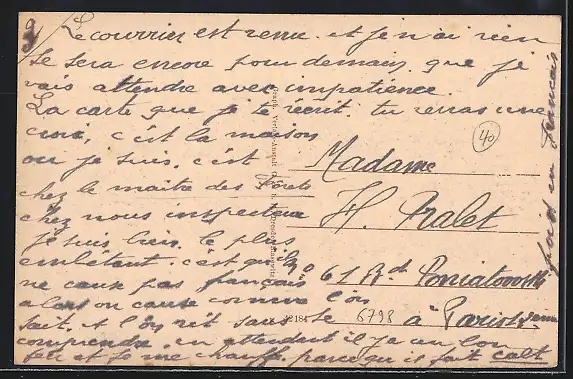 Le courrier est venu et je n'ai rien
se sera encore pour demain que je
vais attendre avec impatience.
La carte que je te écrit. tu verras une
croix, c'est la maison
ou je suis. c'est
chez le maitre des Forets
chez nous inspecteur
je suis bien. le plus
embêtant. c'est qu'ils
ne cause pas français
alors on cause comme l'on
sait, et l'on rit sans se
comprendre. en attendant il y a un bon
feu et je me chauffe. parce qu'il fait
Madame
H. Ralet
61 Bd Poniatowski
à Paris
6798
40